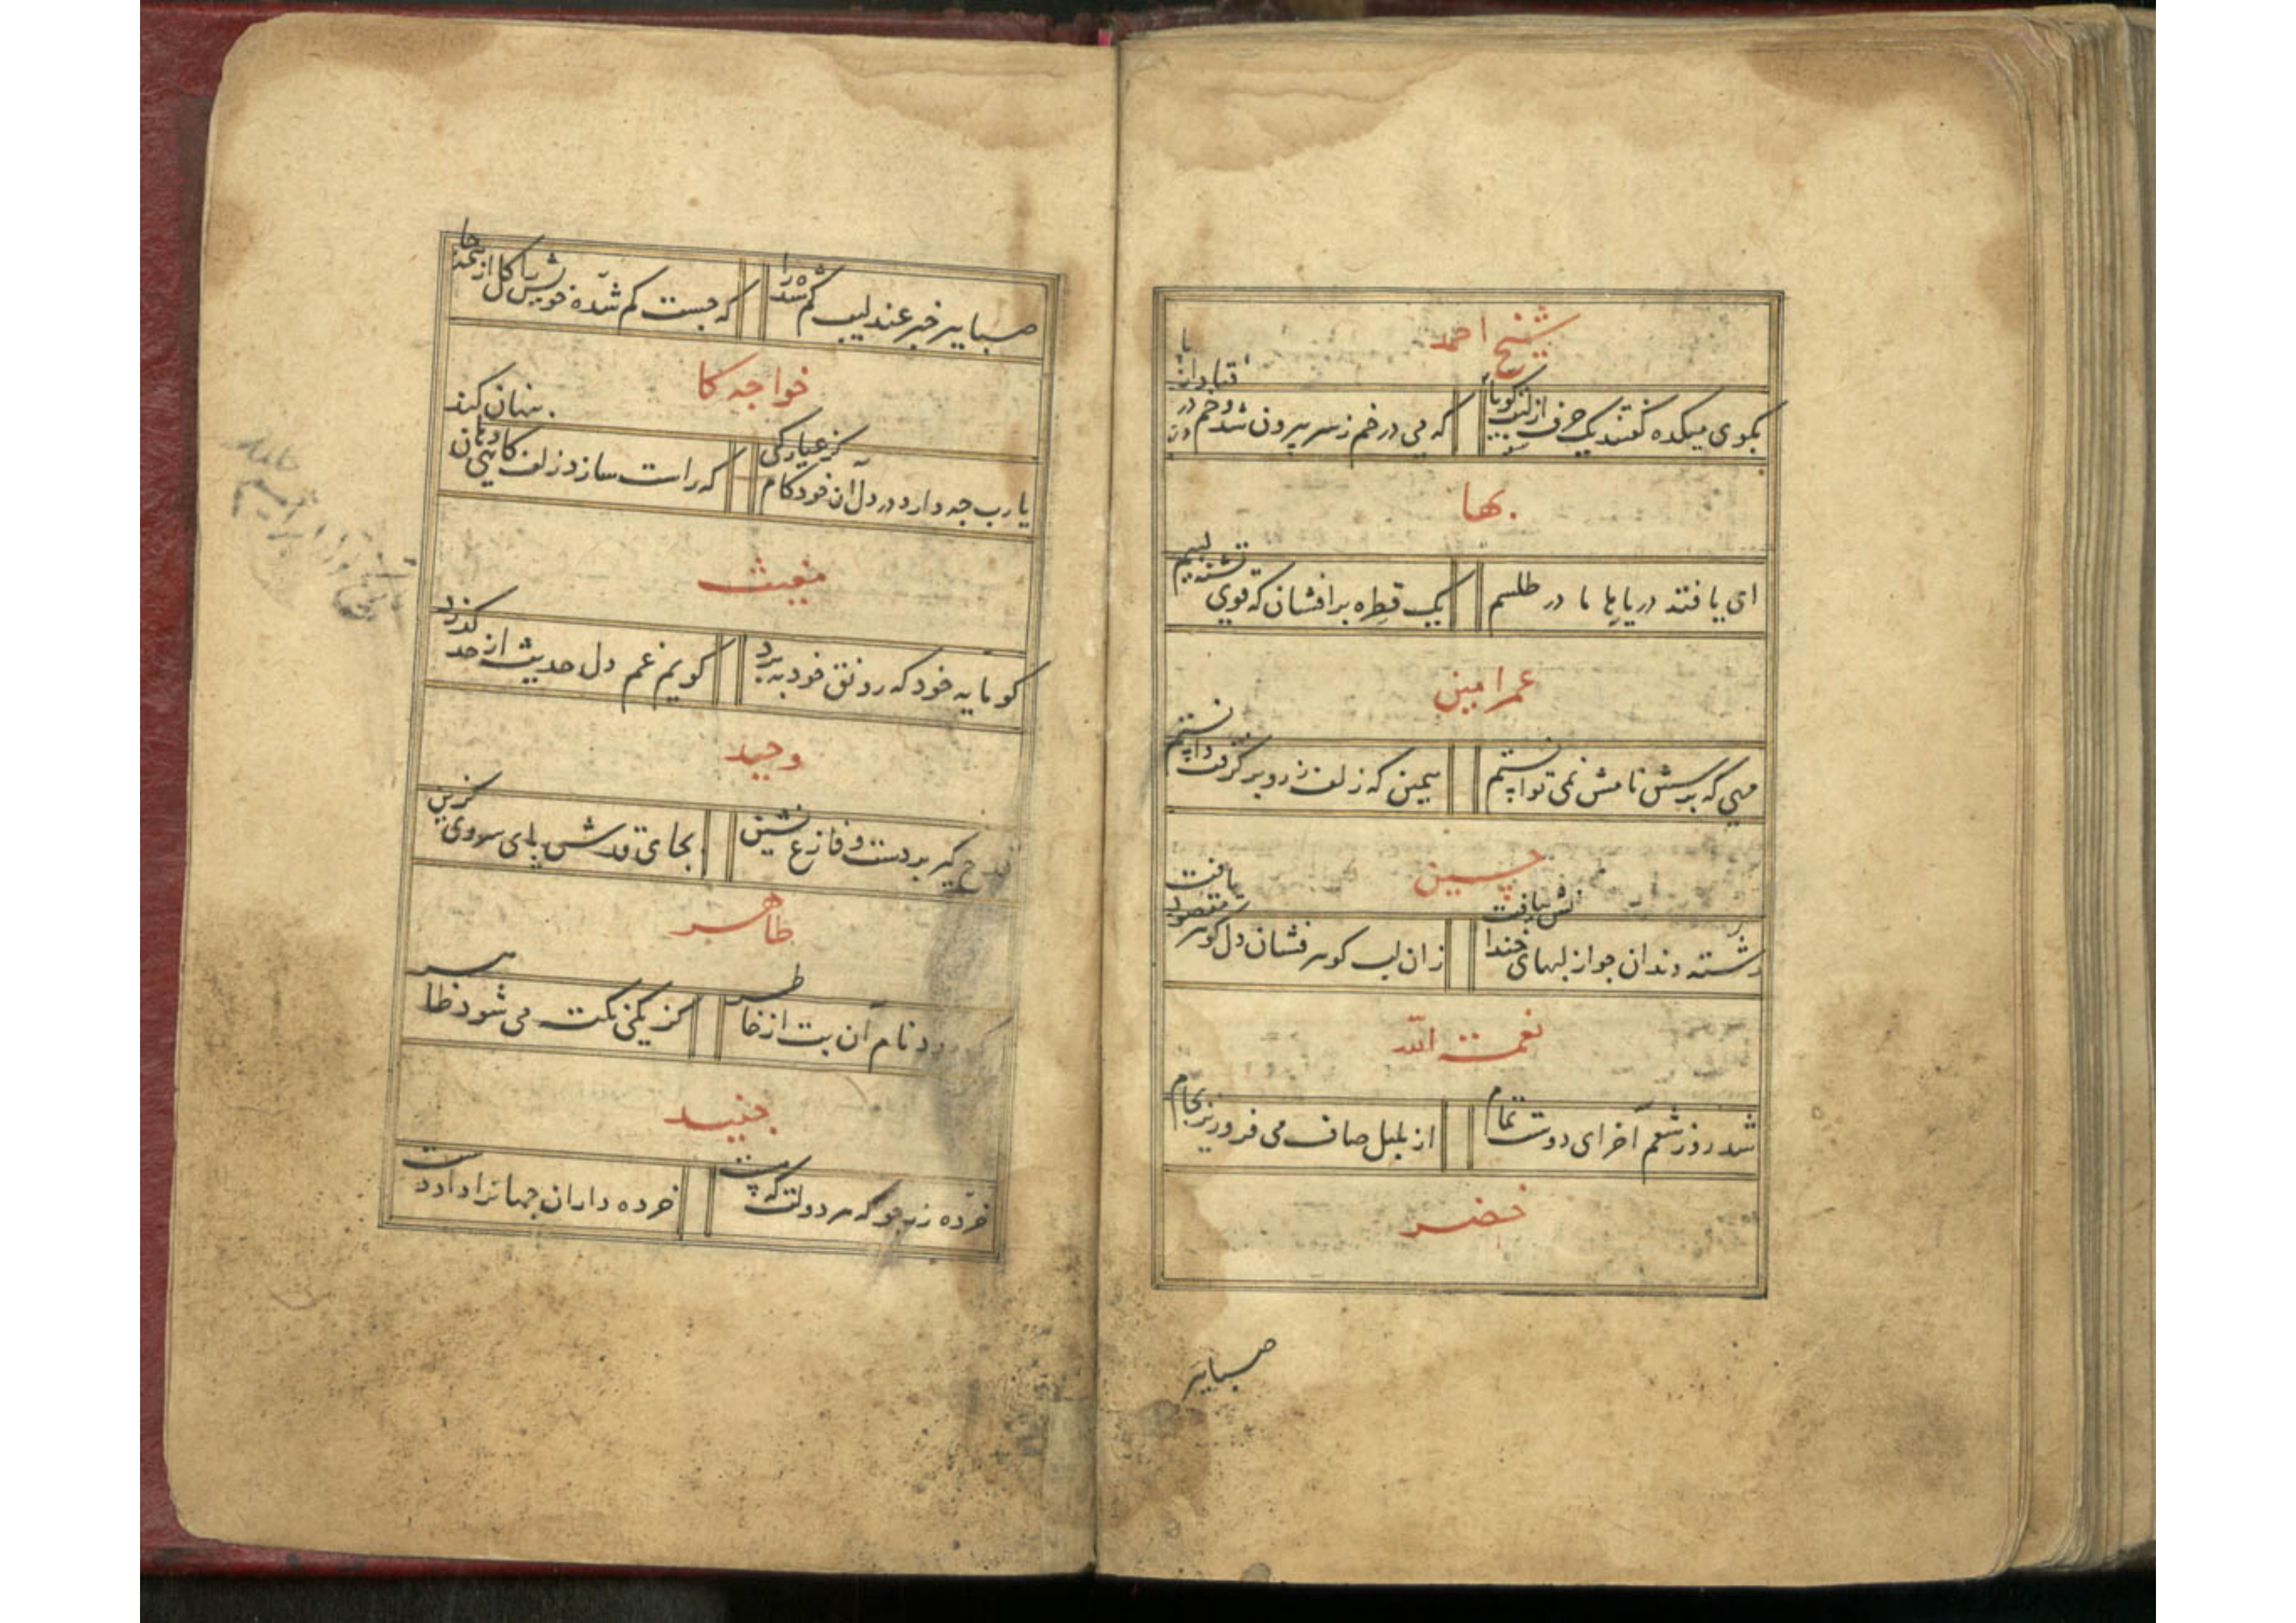 شیخ احمد
بکوی میکده گفتند یک حرف از لب که می در خم ز سر بیرون شد و خم در
بها
ای یافته دریاها ما در طلسم یک قطره برافشان که توی تشنه لبیم
عمر امین
مهی که پرسش نامش نمی توانستم ببین که زلف ز رو برگرفت دانستم
حسین
رشته دندان جو از لبهای خندانش بیافت زان لب کوهر فشان دل کوهر مقصود یافت
نعمت الله
شد روز شعم آخر ای دوست تمام از بلبل صاف می فرو ریز بجام
خضر
صبا ببر
صبا ببر خبر عندلیب کم شده را که جست کم شده خویش را کل از
خواجه کا
یا رب جه دارد در دل آن خودکام کز عیارکی که راست سازد زلف کاهی پنهان کند
مغیث
کو مایه خود که رونق خود ببرد کویم غم دل حدیث از حد کذرد
وحید
قدح کیر بر دست و فازع نشین بجای قدش پای سروی کزین
طاهر
نام آن بت از خاطر کز یکی نکته می شود ظاهر
جنید
خرده زر جو که هر دولت که هست خرده داران جهانرا داد دست